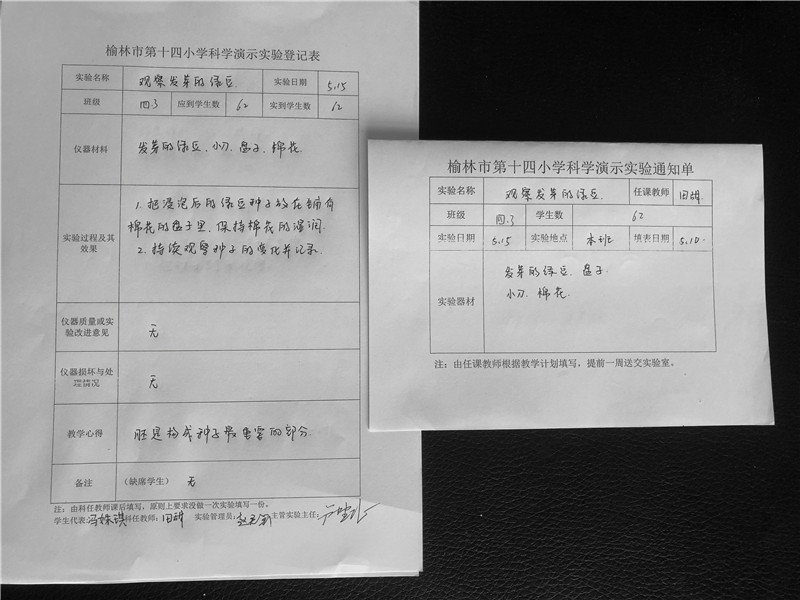 榆林市第十四小学科学演示实验登记表
实验名称 观察发芽的绿豆. 实验日期 5.15
班级 四.3 应到学生数 62 实到学生数 62
仪器材料 发芽的绿豆、小刀、盘子、棉花.
实验过程及其效果
1. 把浸泡后的绿豆种子放在铺有
棉花的盘子里,保持棉花的湿润.
2. 持续观察种子的变化并记录.
仪器质量或实验改进意见 无
仪器损坏与处理情况 无
教学心得 胚是构成种子最重要的部分.
备注 (缺席学生) 无
注:由科任教师课后填写,原则上要求没做一次实验填写一份。
学生代表: 科任教师:田 实验管理员:赵 主管实验主任:
榆林市第十四小学科学演示实验通知单
实验名称 观察发芽的绿豆. 任课教师 田
班级 四.3 学生数 62
实验日期 5.15 实验地点 本班 填表日期 5.10.
实验器材
发芽的绿豆、盘子.
小刀、棉花.
注:由任课教师根据教学计划填写,提前一周送交实验室。